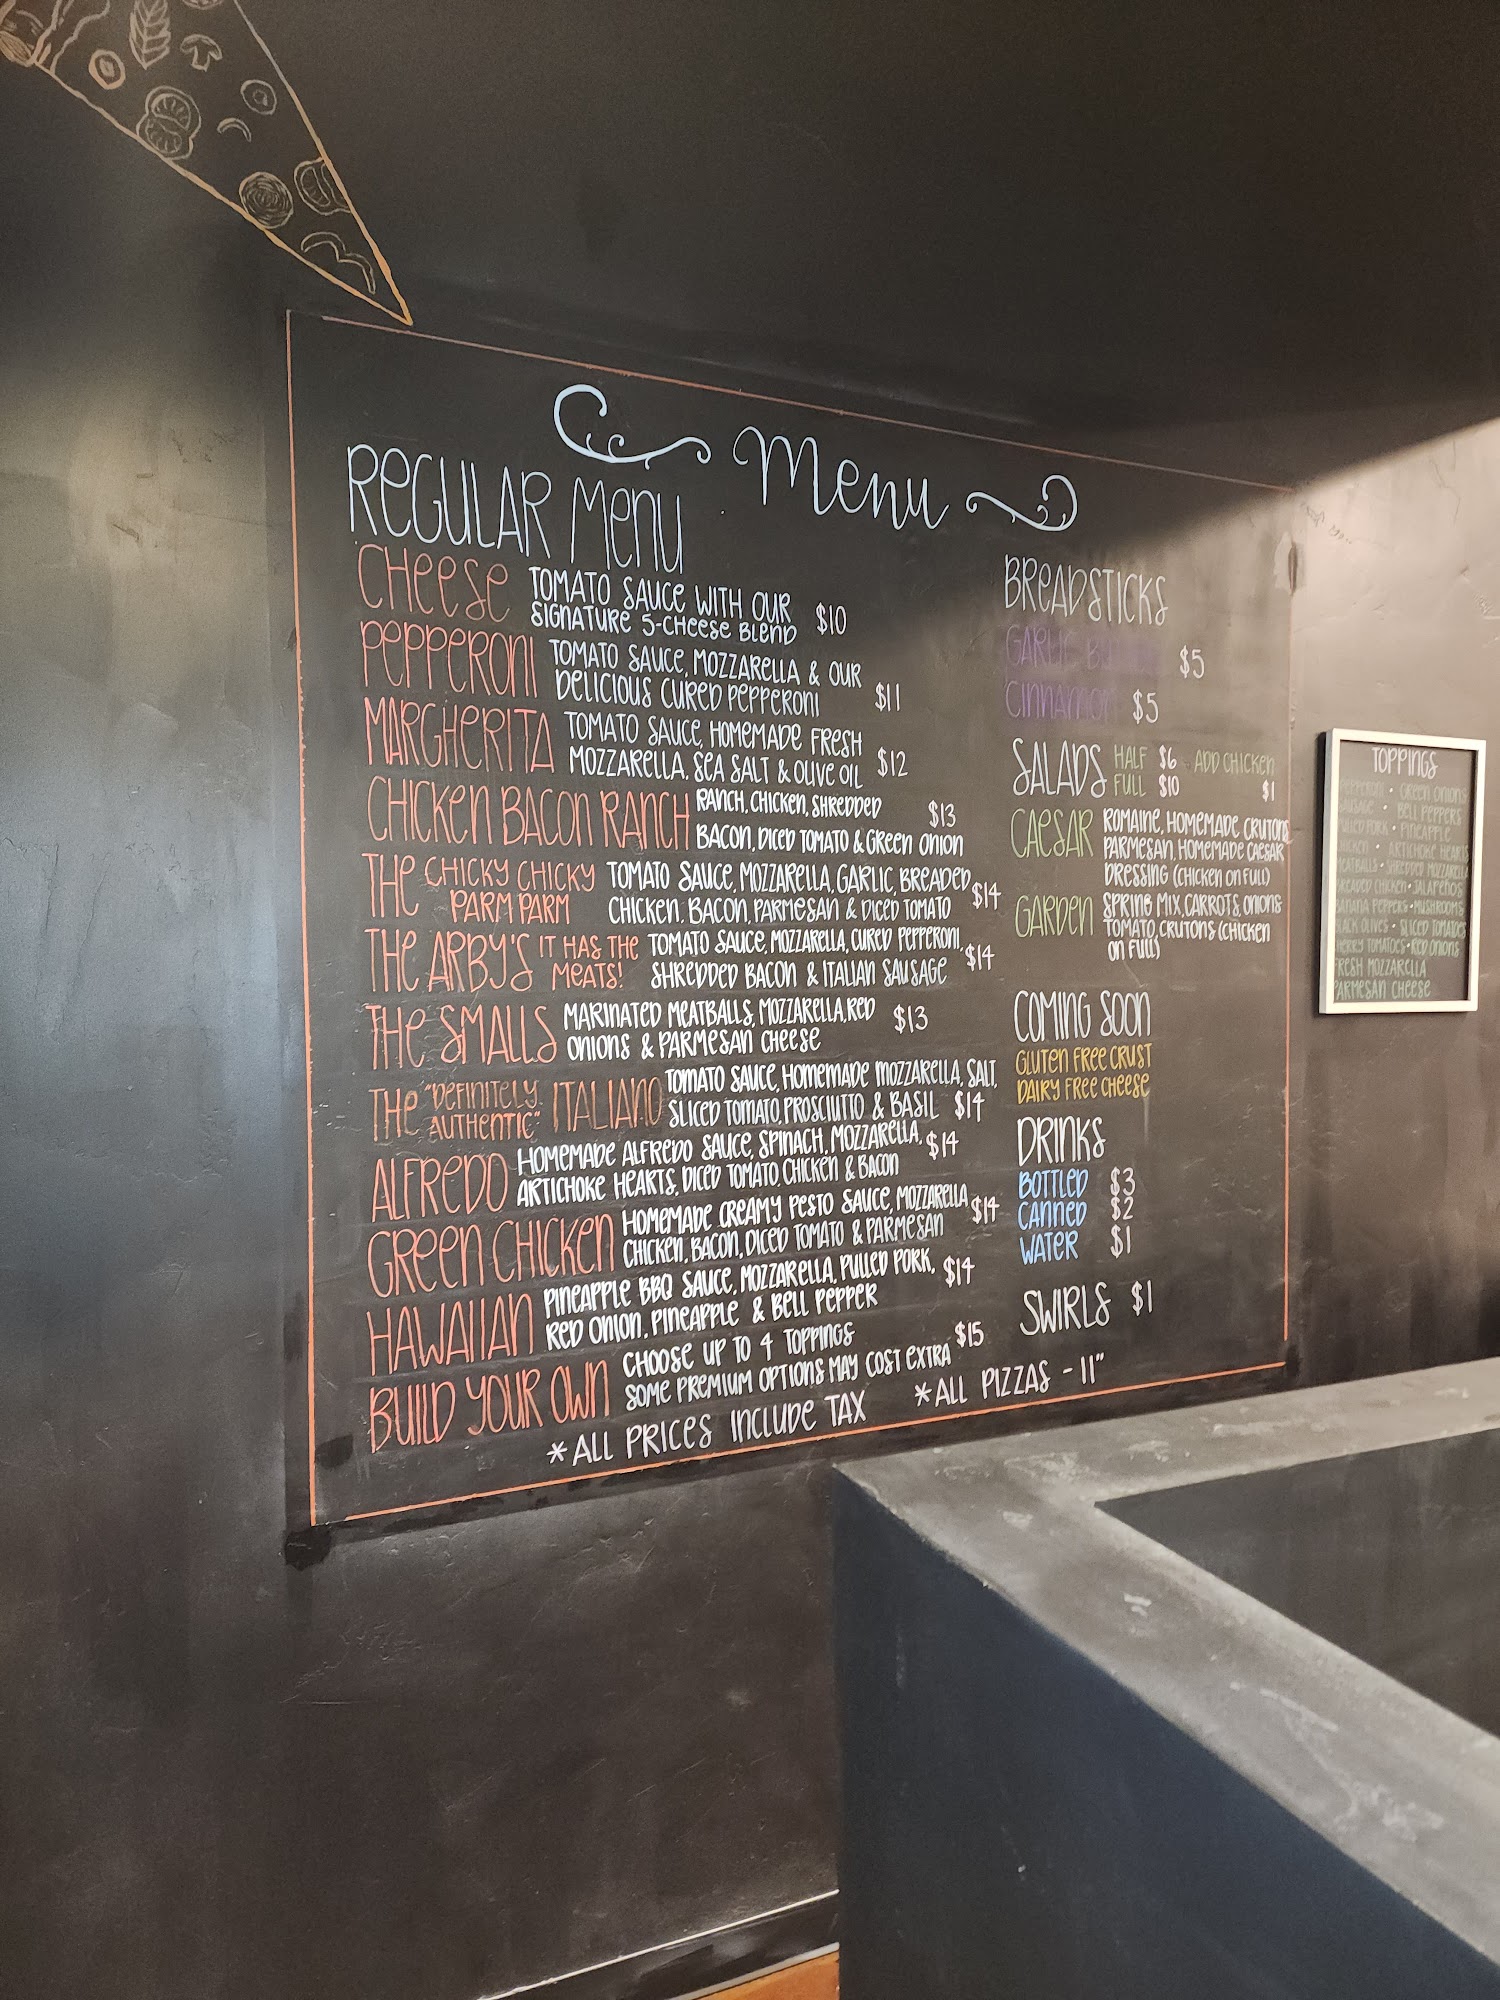 Menu
REGULAR MENU
CHEESE TOMATO SAUCE WITH OUR
SIGNATURE 5-CHEESE BLEND $10
PEPPERONI TOMATO SAUCE, MOZZARELLA & OUR
DELICIOUS CURED PEPPERONI $11
MARGHERITA TOMATO SAUCE, HOMEMADE FRESH
MOZZARELLA, SEA SALT & OLIVE OIL $12
CHICKEN BACON RANCH RANCH, CHICKEN, SHREDDED $13
BACON, DICED TOMATO & GREEN ONION
THE CHICKY CHICKY TOMATO SAUCE, MOZZARELLA, GARLIC, BREADED
PARM PARM CHICKEN, BACON, PARMESAN & DICED TOMATO $14
THE ARBY'S IT HAS THE TOMATO SAUCE, MOZZARELLA, CURED PEPPERONI,
MEATS! SHREDDED BACON & ITALIAN SAUSAGE $14
THE SMALLS MARINATED MEATBALLS, MOZZARELLA, RED
ONIONS & PARMESAN CHEESE $13
THE "DEFINITELY ITALIANO TOMATO SAUCE, HOMEMADE MOZZARELLA, SALT,
AUTHENTIC" SLICED TOMATO, PROSCIUTTO & BASIL $14
ALFREDO HOMEMADE ALFREDO SAUCE, SPINACH, MOZZARELLA,
ARTICHOKE HEARTS, DICED TOMATO, CHICKEN & BACON $14
GREEN CHICKEN HOMEMADE CREAMY PESTO SAUCE, MOZZARELLA
CHICKEN, BACON, DICED TOMATO & PARMESAN $14
HAWAIIAN PINEAPPLE BBQ SAUCE, MOZZARELLA, PULLED PORK,
RED ONION, PINEAPPLE & BELL PEPPER $14
BUILD YOUR OWN CHOOSE UP TO 4 TOPPINGS $15
SOME PREMIUM OPTIONS MAY COST EXTRA
*ALL PRICES INCLUDE TAX *ALL PIZZAS - 11"
BREADSTICKS
GARLIC $5
CINNAMON $5
SALADS HALF $6 ADD CHICKEN
FULL $10 $1
CAESAR ROMAINE, HOMEMADE CRUTONS
PARMESAN, HOMEMADE CAESAR
DRESSING (CHICKEN ON FULL)
GARDEN SPRING MIX, CARROTS, ONIONS
TOMATO, CRUTONS (CHICKEN
ON FULL)
COMING SOON
GLUTEN FREE CRUST
DAIRY FREE CHEESE
DRINKS
BOTTLED $3
CANNED $2
WATER $1
SWIRLS $1
TOPPINGS
PEPPERONI • GREEN ONIONS
SAUSAGE • BELL PEPPERS
PULLED PORK • PINEAPPLE
CHICKEN • ARTICHOKE HEARTS
MEATBALLS • SHREDDED MOZZARELLA
BREADED CHICKEN • JALAPEÑOS
BANANA PEPPERS • MUSHROOMS
BLACK OLIVES • SLICED TOMATOES
CHERRY TOMATOES • RED ONIONS
FRESH MOZZARELLA
PARMESAN CHEESE